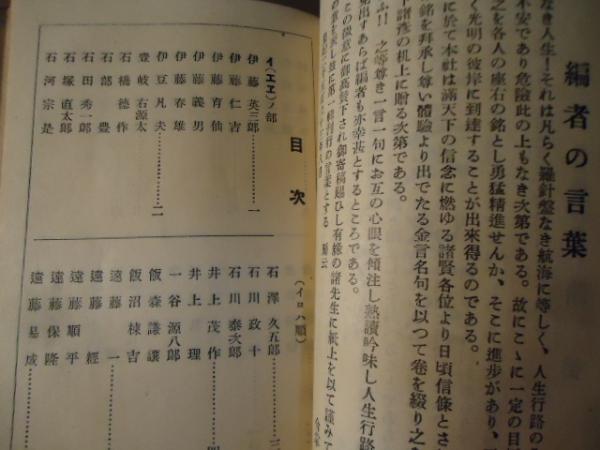 編者の言葉
なき人生！それは凡らく羅針盤なき航海に等しく、人生行路の
不安であり危險此の上もなき次第である。故にこゝに一定の目
之を各人の座右の銘とし勇猛精進せんか、そこに進歩があり、
く光明の彼岸に到達することが出來得るのである。
に於て本社は滿天下の信念に燃ゆる諸賢各位より日頃信條とさ
銘を拜承し尊い體驗より出でたる金言名句を以つて卷を綴り之
下諸彦の机上に贈る次第である。
ふ!! 之等尊き一言一句にお互の心眼を傾注し熟讀吟味し人生行路
見出すあらば編者も亦幸甚とするところである。
この微意に御高贊下され御寄稿賜ひし有縁の諸先生に紙上を以て謹みて
目次
(イロハ順)
イ(ヱエ)ノ部
伊藤英三郎 一
伊藤仁吉
伊藤育仙
伊藤義男
伊藤春雄
伊豆凡夫 二
豊岐右源太
石橋德作
石部豊
石田秀一郎
石塚直太郎
石河宗是
石澤久五郎 三
石川政十
石川泰次郎
井上茂作 四
井上理
一谷源八郎
飯森謙讓
飯沼棟吉
遠藤一
遠藤經
遠藤順平
遠藤保隆
遠藤易成